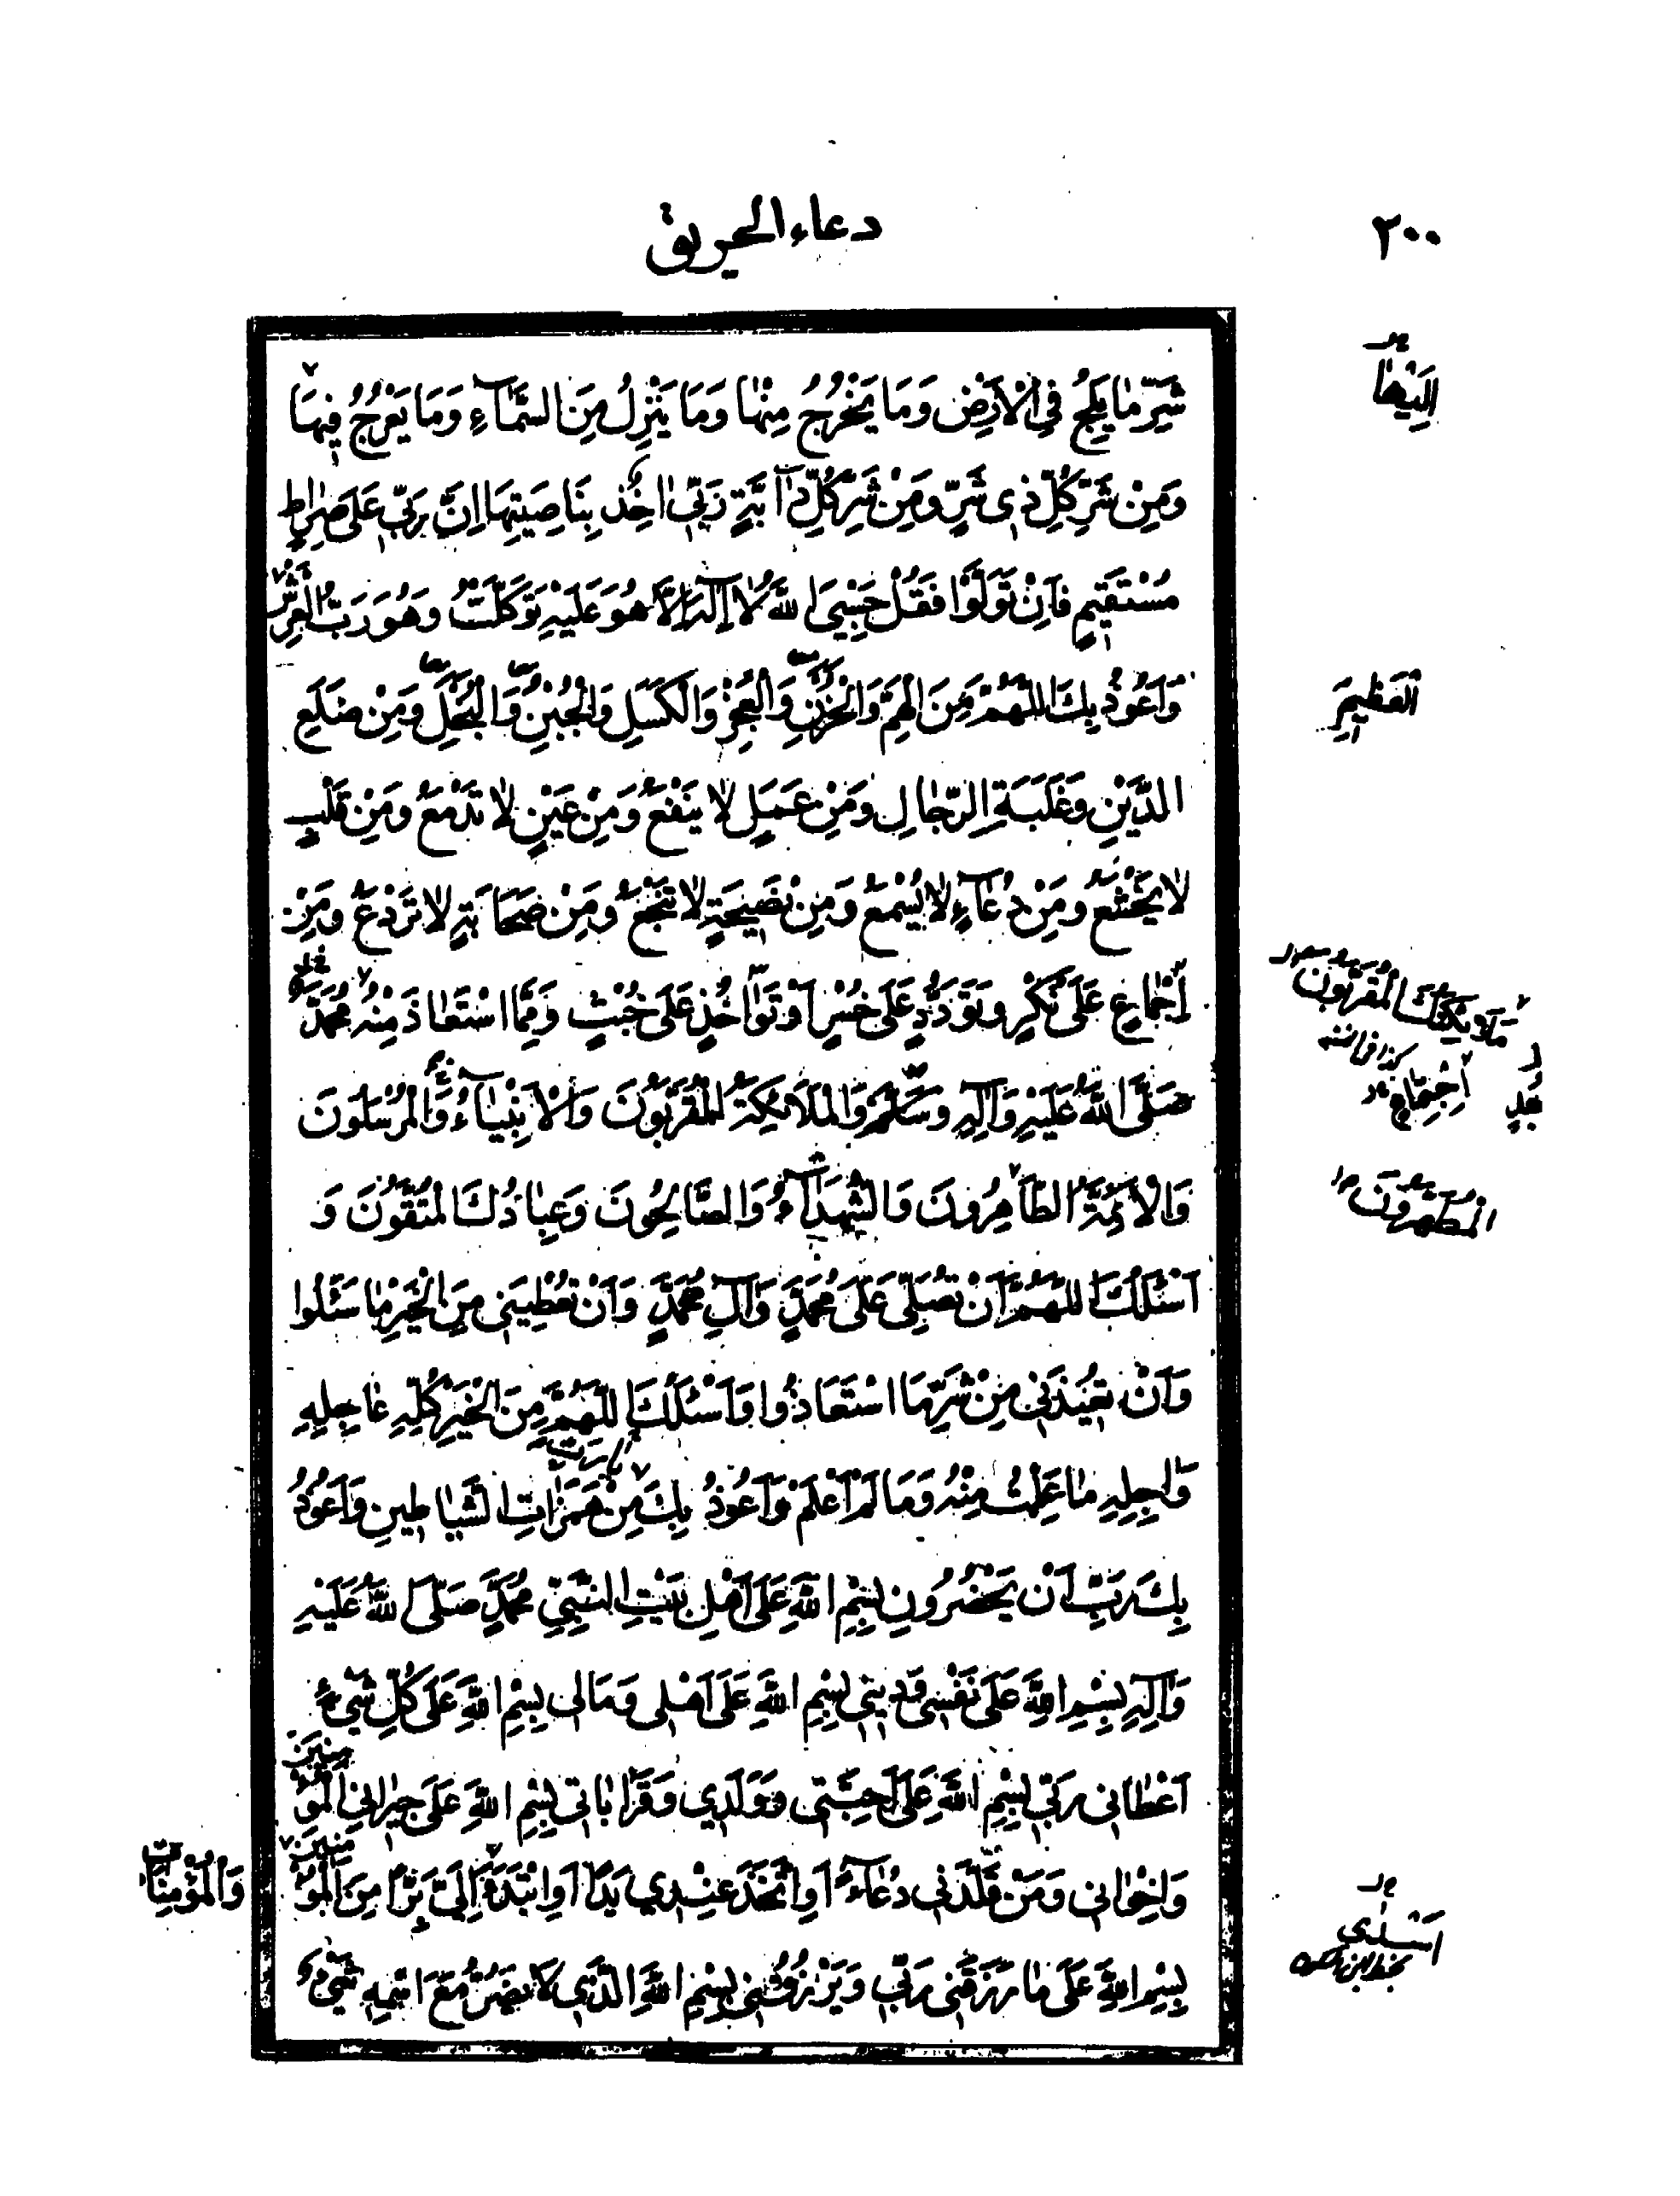 ٢٠٠
دعاء الحريق
شَرِّ مٰا يَلِجُ فِي الْاَرْضِ وَمَا يَخْرُجُ مِنْهٰا وَمَا يَنْزِلُ مِنَ السَّمَآءِ وَمَا يَعْرُجُ فِيهَا
اِلَيْهٰا
وَمِنْ شَرِّ كُلِّ ذِي شَرٍّ وَمِنْ شَرِّ كُلِّ دٰآبَّةٍ رَبِّي اٰخِذٌ بِنَاصِيَتِهَا اِنَّ رَبِّي عَلَى صِرٰاطٍ
مُسْتَقِيمٍ فَاِنْ تَوَلَّوْا فَقُلْ حَسْبِيَ اللّٰهُ لٰا اِلٰهَ اِلَّا هُوَ عَلَيْهِ تَوَكَّلْتُ وَهُوَ رَبُّ الْعَرْشِ
الْعَظِيمِ
وَاَعُوذُ بِكَ اللّٰهُمَّ مِنَ الْهَمِّ وَالْحُزْنِ وَالْعَجْزِ وَالْكَسَلِ وَالْجُبْنِ وَالْبُخْلِ وَمِنْ ضَلَعِ
الدَّيْنِ وَغَلَبَةِ الرِّجٰالِ وَمِنْ عَمَلٍ لٰا يَنْفَعُ وَمِنْ عَيْنٍ لٰا تَدْمَعُ وَمِنْ قَلْبٍ
لٰا يَخْشَعُ وَمِنْ دُعَآءٍ لٰا يُسْمَعُ وَمِنْ نَصِيحَةٍ لٰا تَنْجَعُ وَمِنْ صَحَابَةٍ لٰا تَرْدَعُ وَمِنْ
اِجْمٰاعٍ عَلَى نُكْرٍ وَتَوَدُّدٍ عَلَى خُسْرٍ اَوْ تَوَاخُذٍ عَلَى خُبْثٍ وَمِمَّا اسْتَعَاذَ مِنْهُ مُحَمَّدٌ
مَلَآئِكَتُكَ الْمُقَرَّبُونَ
اِجْتِمَاعٍ
صَلَّى اللّٰهُ عَلَيْهِ وَآلِهِ وَسَلَّمَ وَالْمَلَائِكَةُ الْمُقَرَّبُونَ وَالْاَنْبِيَآءُ وَالْمُرْسَلُونَ
وَالْاَئِمَّةُ الطَّاهِرُونَ وَالشُّهَدَآءُ وَالصَّالِحُونَ وَعِبٰادُكَ الْمُتَّقُونَ وَ
الْمُطَهَّرُونَ
اَسْئَلُكَ اللّٰهُمَّ اَنْ تُصَلِّيَ عَلَى مُحَمَّدٍ وَآلِ مُحَمَّدٍ وَاَنْ تُعْطِيَنِي مِنَ الْخَيْرِ مٰا سَئَلُوا
وَاَنْ تُعِيذَنِي مِنْ شَرِّ مَا اسْتَعَاذُوا وَاَسْئَلُكَ اللّٰهُمَّ مِنَ الْخَيْرِ كُلِّهِ عٰاجِلِهِ
وَاٰجِلِهِ مٰا عَلِمْتُ مِنْهُ وَمَا لَمْ اَعْلَمْ وَاَعُوذُ بِكَ مِنْ هَمَزٰاتِ الشَّيٰاطِينِ وَاَعُوذُ
يٰا رَبِّ
بِكَ رَبِّ اَنْ يَحْضُرُونِ بِسْمِ اللّٰهِ عَلَى اَهْلِ بَيْتِ النَّبِيِّ مُحَمَّدٍ صَلَّى اللّٰهُ عَلَيْهِ
وَآلِهِ بِسْمِ اللّٰهِ عَلَى نَفْسِي وَدِينِي بِسْمِ اللّٰهِ عَلَى اَهْلِي وَمَالِي بِسْمِ اللّٰهِ عَلَى كُلِّ شَيْءٍ
اَعْطَانِي رَبِّي بِسْمِ اللّٰهِ عَلَى اَحِبَّتِي وَوَلَدِي وَقَرَابَاتِي بِسْمِ اللّٰهِ عَلَى جِيرٰانِي الْمُؤْمِنِينَ
وَاِخْوٰانِي وَمَنْ قَلَّدَنِي دُعَآءً اَوِ اتَّخَذَ عِنْدِي يَدًا اَوِ ابْتَدَءَ اِلَيَّ بِرًّا مِنَ الْمُؤْمِنِينَ
وَالْمُؤْمِنَاتِ
بِسْمِ اللّٰهِ عَلَى مٰا رَزَقَنِي رَبِّي وَيَرْزُقُنِي بِسْمِ اللّٰهِ الَّذِي لَا يَضُرُّ مَعَ اسْمِهِ شَيْءٌ